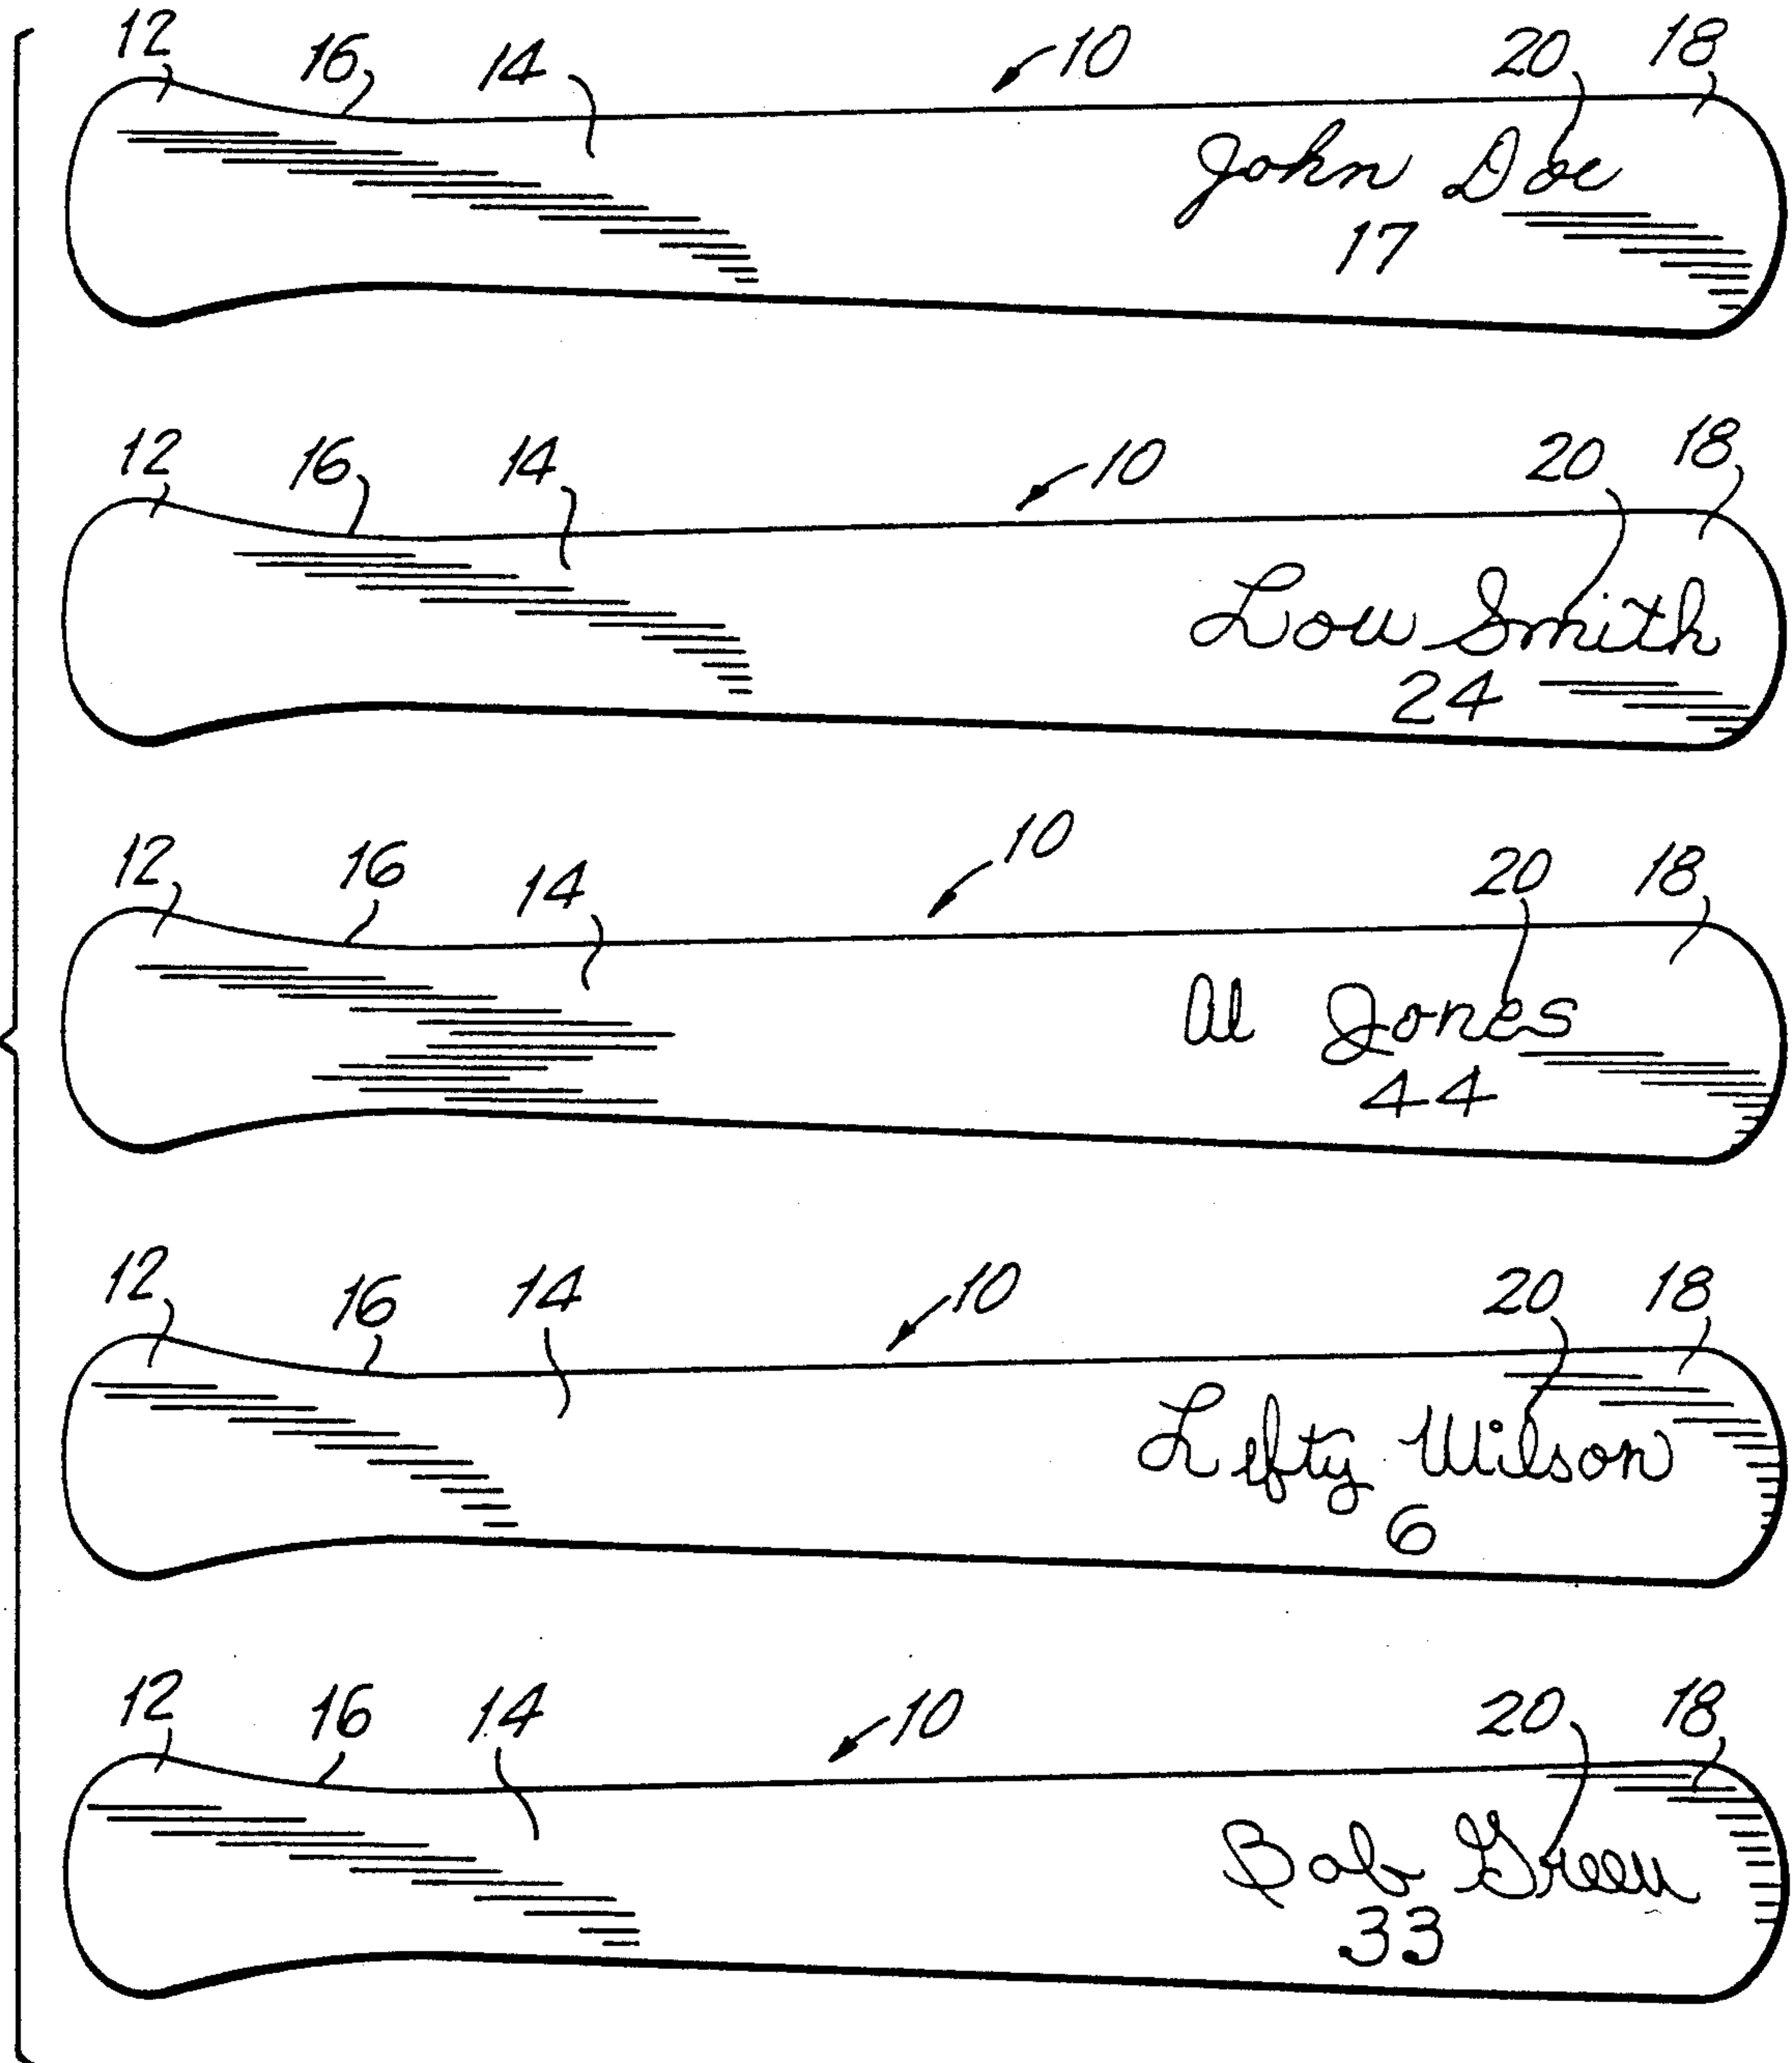 12 16 14 10 20 18
John Doe
17
12 16 14 10 20 18
Lou Smith
24
12 16 14 10 20 18
Al Jones
44
12 16 14 10 20 18
Lefty Wilson
6
12 16 14 10 20 18
Bob Green
33